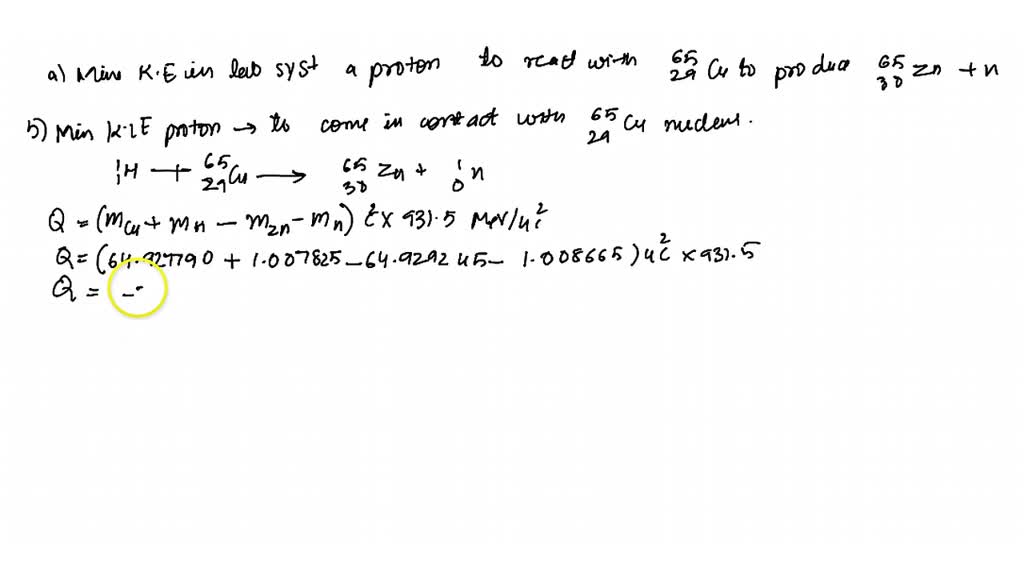 a) Min K.E in lab syst a proton to react with ⁶⁵₂₉Cu to produce ⁶⁵₃₀Zn + n
b) Min K.E proton → to come in contact with ⁶⁵₂₉Cu nucleus.
¹₁H + ⁶⁵₂₉Cu → ⁶⁵₃₀Zn + ¹₀n
Q = (m_Cu + m_H - m_Zn - m_n) c² × 931.5 MeV/uc²
Q = (64.927790 + 1.007825 - 64.929245 - 1.008665) uc² × 931.5
Q = -